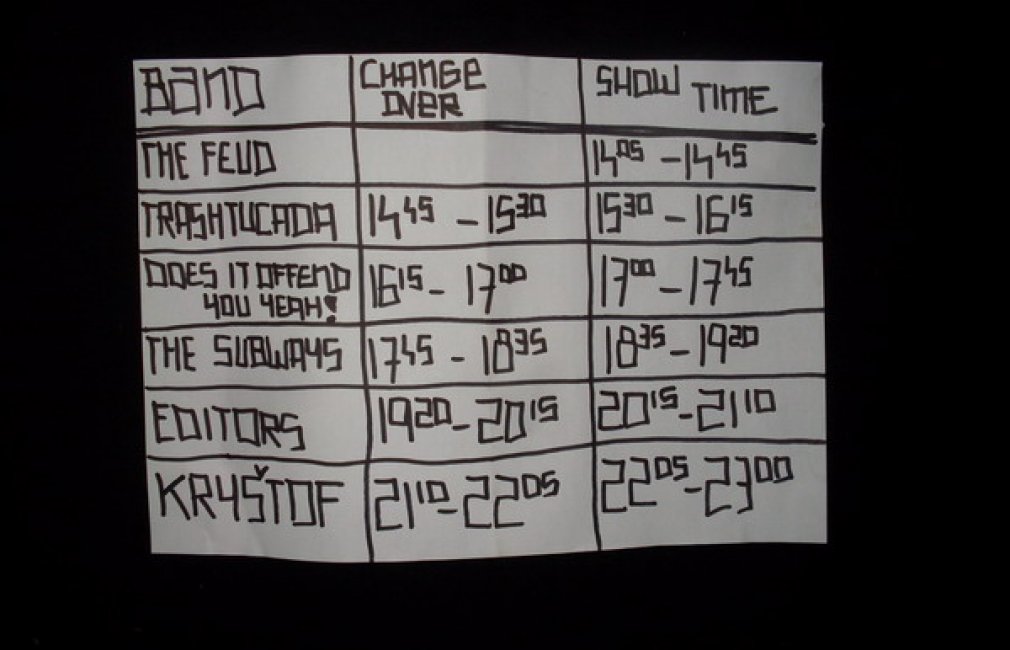 BAND CHANGE OVER SHOW TIME
THE FEUD 14:05 - 14:45
TRASHTUCADA 14:45 - 15:30 15:30 - 16:15
DOES IT OFFEND YOU YEAH! 16:15 - 17:00 17:00 - 17:45
THE SUBWAYS 17:45 - 18:35 18:35 - 19:20
EDITORS 19:20 - 20:15 20:15 - 21:10
KRYŠTOF 21:10 - 22:05 22:05 - 23:00